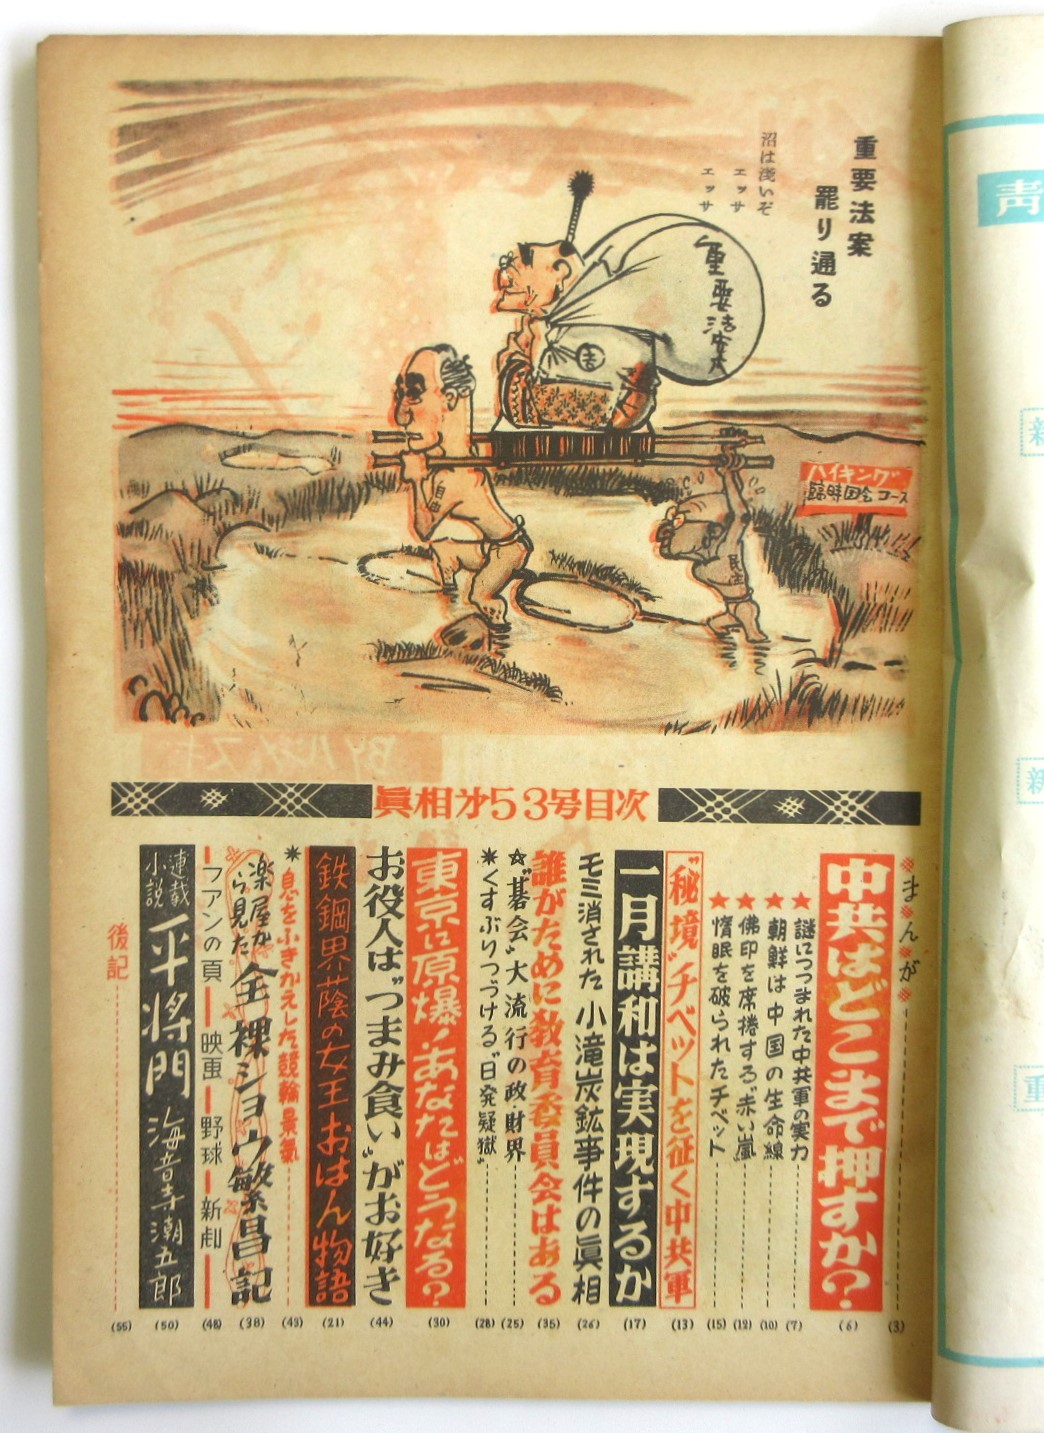 重要法案
罷り通る
沼は浅いぞ
エッサ
エッサ
重要法案
吉
自由
民主
ハイキング
臨時国会コース
眞相第53号目次
まんが (3)
中共はどこまで押すか? (6)
★謎につつまれた中共軍の実力 (7)
★朝鮮は中国の生命線 (10)
★佛印を席捲する“赤い嵐” (12)
★惰眠を破られたチベット (15)
“秘境”チベットを征く中共軍 (13)
一月講和は実現するか (17)
モミ消された 小滝炭鉱事件の眞相 (26)
誰がために教育委員会はある (35)
☆“碁会”大流行の政・財界 (25)
＊くすぶりつづける“日発疑獄” (28)
東京に原爆!あなたはどうなる? (30)
お役人は“つまみ食い”がお好き (44)
鉄鋼界蔭の女王おはん物語 (21)
＊息をふきかえした競輪景氣 (43)
楽屋から見た 全裸ショウ繁昌記 (38)
ファンの頁 映画 野球 新劇 (48)
連載小説 平將門 海音寺潮五郎 (50)
後記 (55)
青
新
新
重